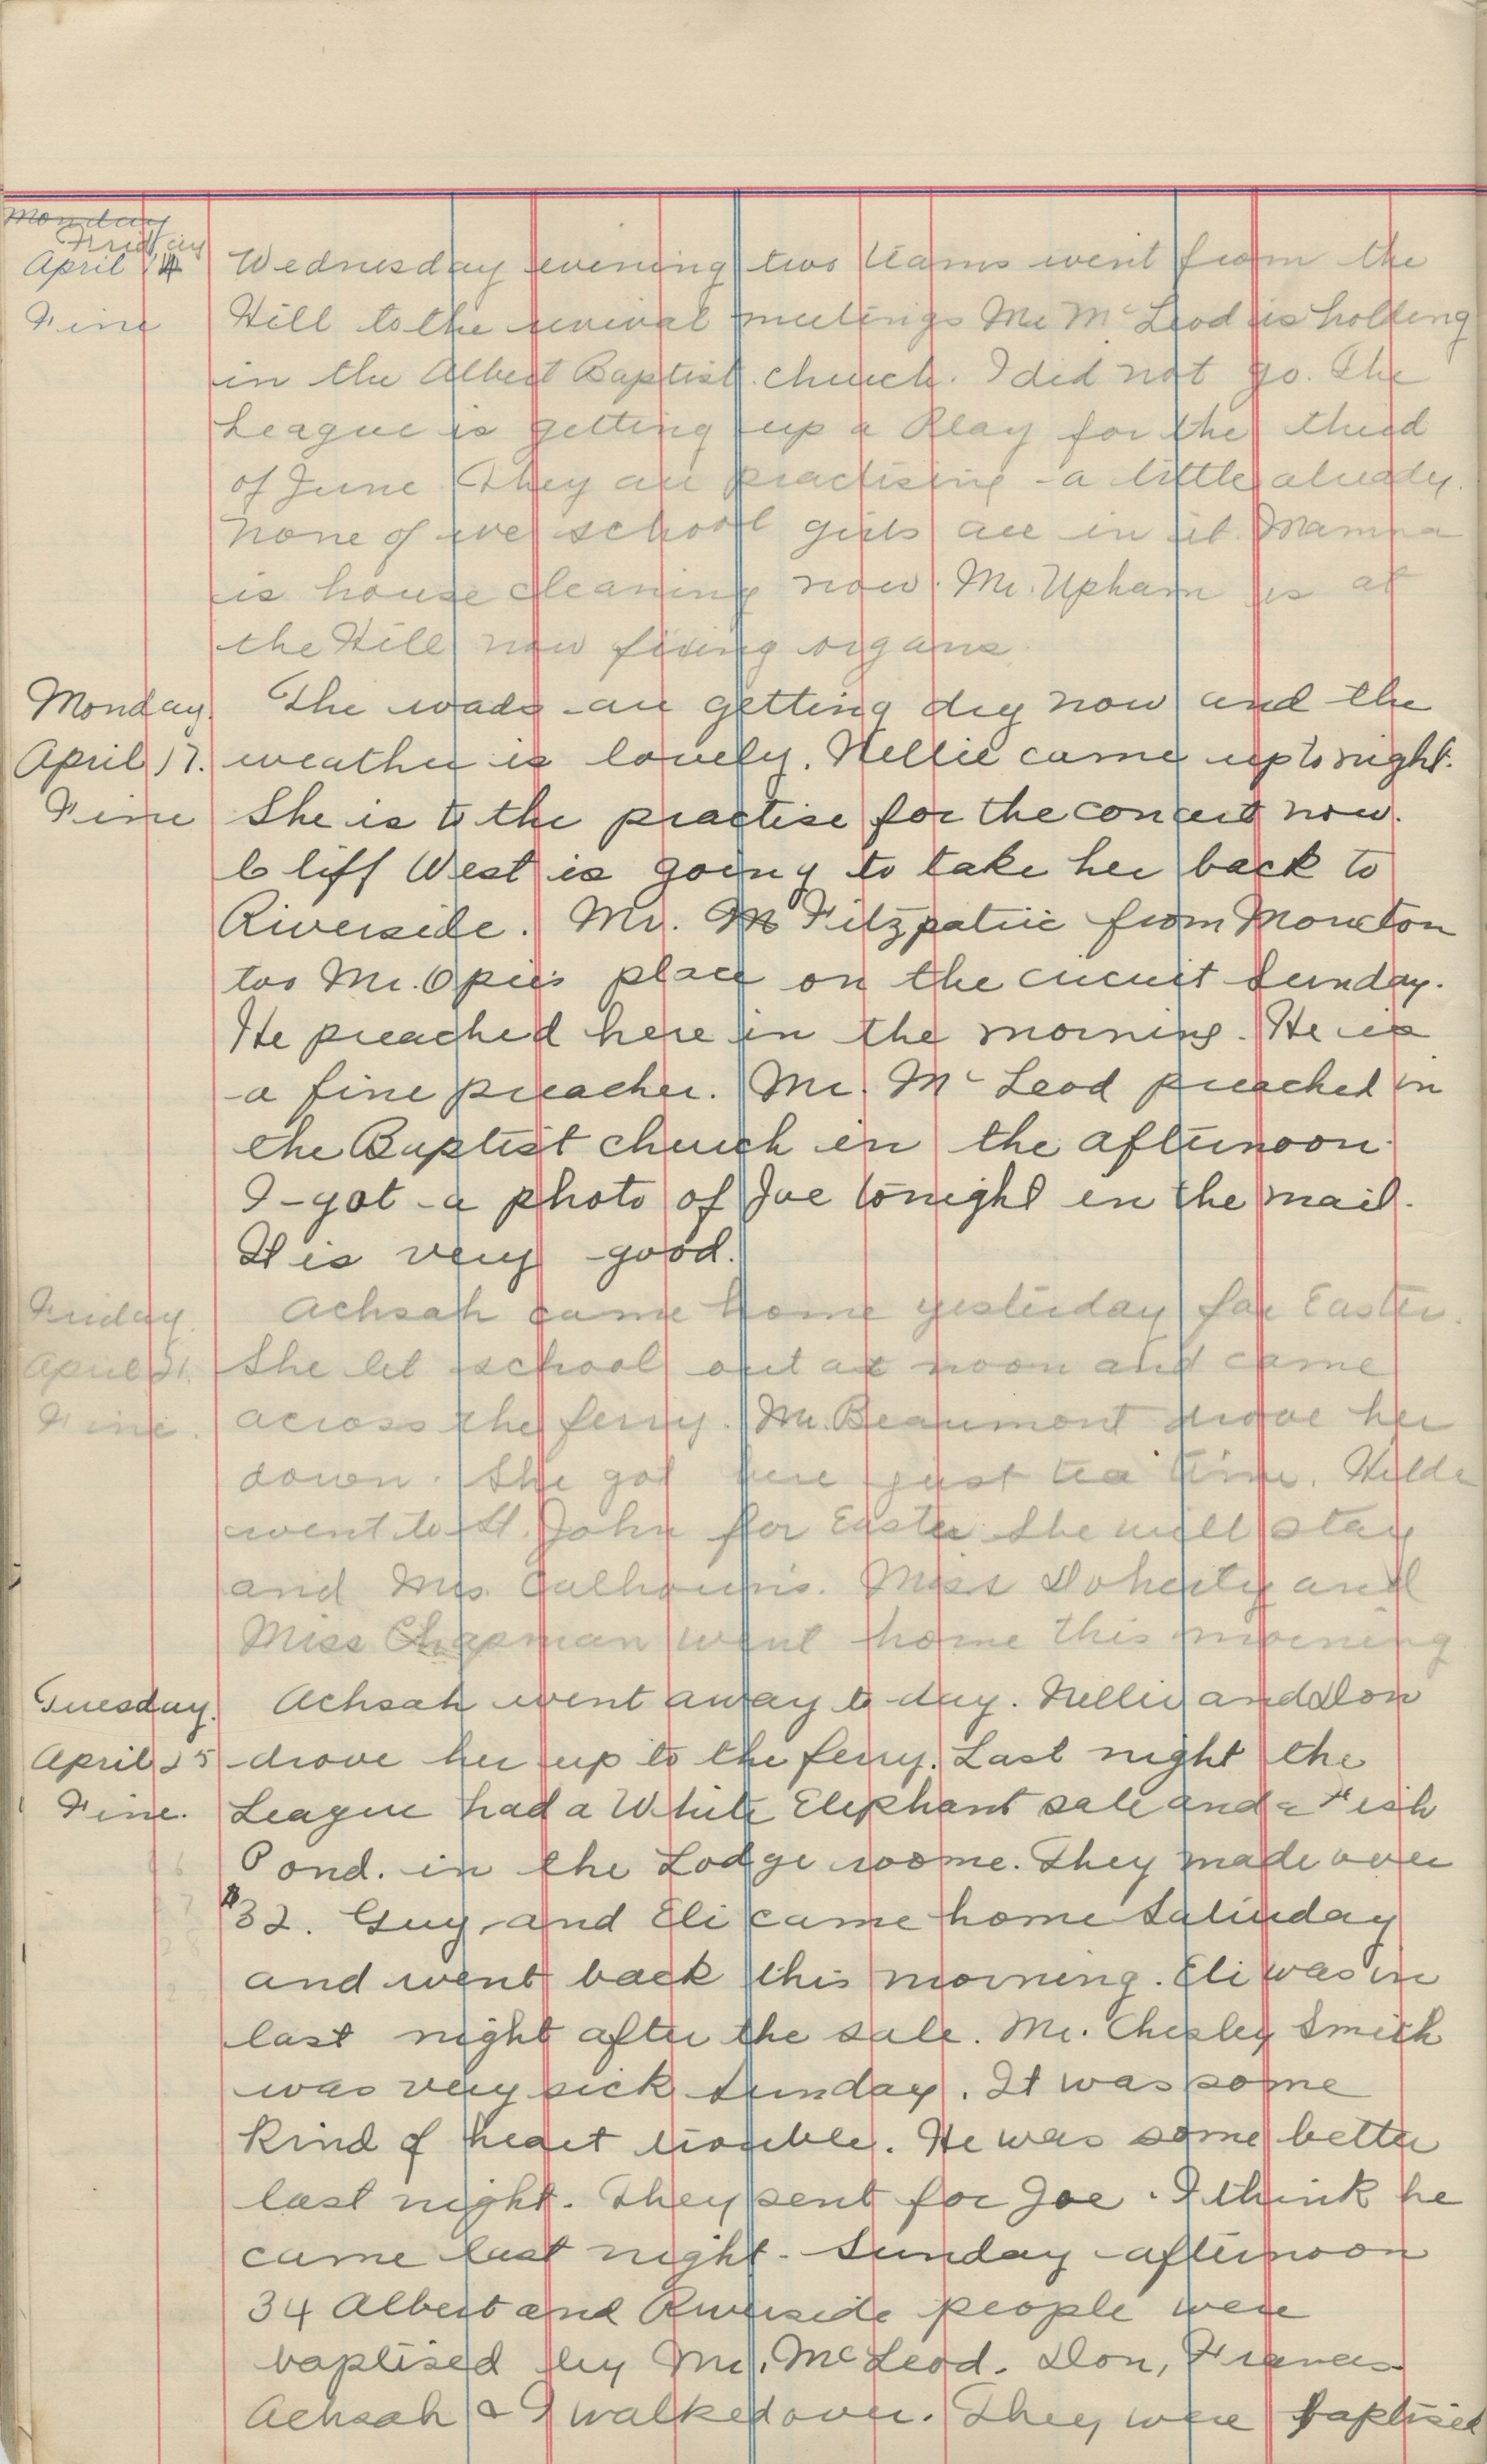 Monday
Friday
April 14 Wednesday evening two teams went from the
Fine Hill to the revival meetings Mr McLeod is holding
in the Albert Baptist church. I did not go. The
League is getting up a Play for the third
of June. They are practising a little already.
None of we school girls are in it. Mamma
is house cleaning now. Mr. Upham is at
the Hill now fixing organs.
Monday. The roads are getting dry now and the
April 17. weather is lovely. Nellie came up to night.
Fine She is to the practise for the concert now.
Cliff West is going to take her back to
Riverside. Mr. Fitzpatric from Moncton
too Mr. Opie's place on the circuit Sunday.
He preached here in the morning. He is
a fine preacher. Mr. McLeod preached in
the Baptist church in the afternoon.
I got a photo of Joe tonight in the mail.
It is very good.
Friday. Achsah came home yesterday for Easter.
April 21. She let school out at noon and came
Fine. across the ferry. Mr. Beaumont drove her
down. She got here just tea time. Hilda
went to St. John for Easter. She will stay
and Mrs. Calhoun's. Miss Doherty and
Miss Chapman went home this morning
Tuesday. Achsah went away to day. Nellie and Don
April 25 drove her up to the ferry. Last night the
Fine. League had a White Elephant sale and a Fish
Pond. in the Lodge roome. They made over
$32. Guy and Eli came home Saturday
and went back this morning. Eli was in
last night after the sale. Mr. Chesley Smith
was very sick Sunday. It was some
kind of heart trouble. He was some better
last night. They sent for Joe. I think he
came last night. Sunday afternoon
34 Albert and Riverside people were
baptised by Mr. McLeod. Don, Frances
Achsah & I walked over. They were baptised